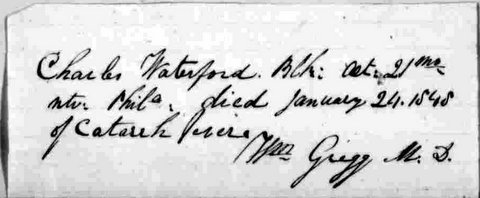 Charles Waterford. Blk: aet: 21 mo
ntv: Phila. died January 24. 1848
of Catarrh fever
Wm Gregg M. D.